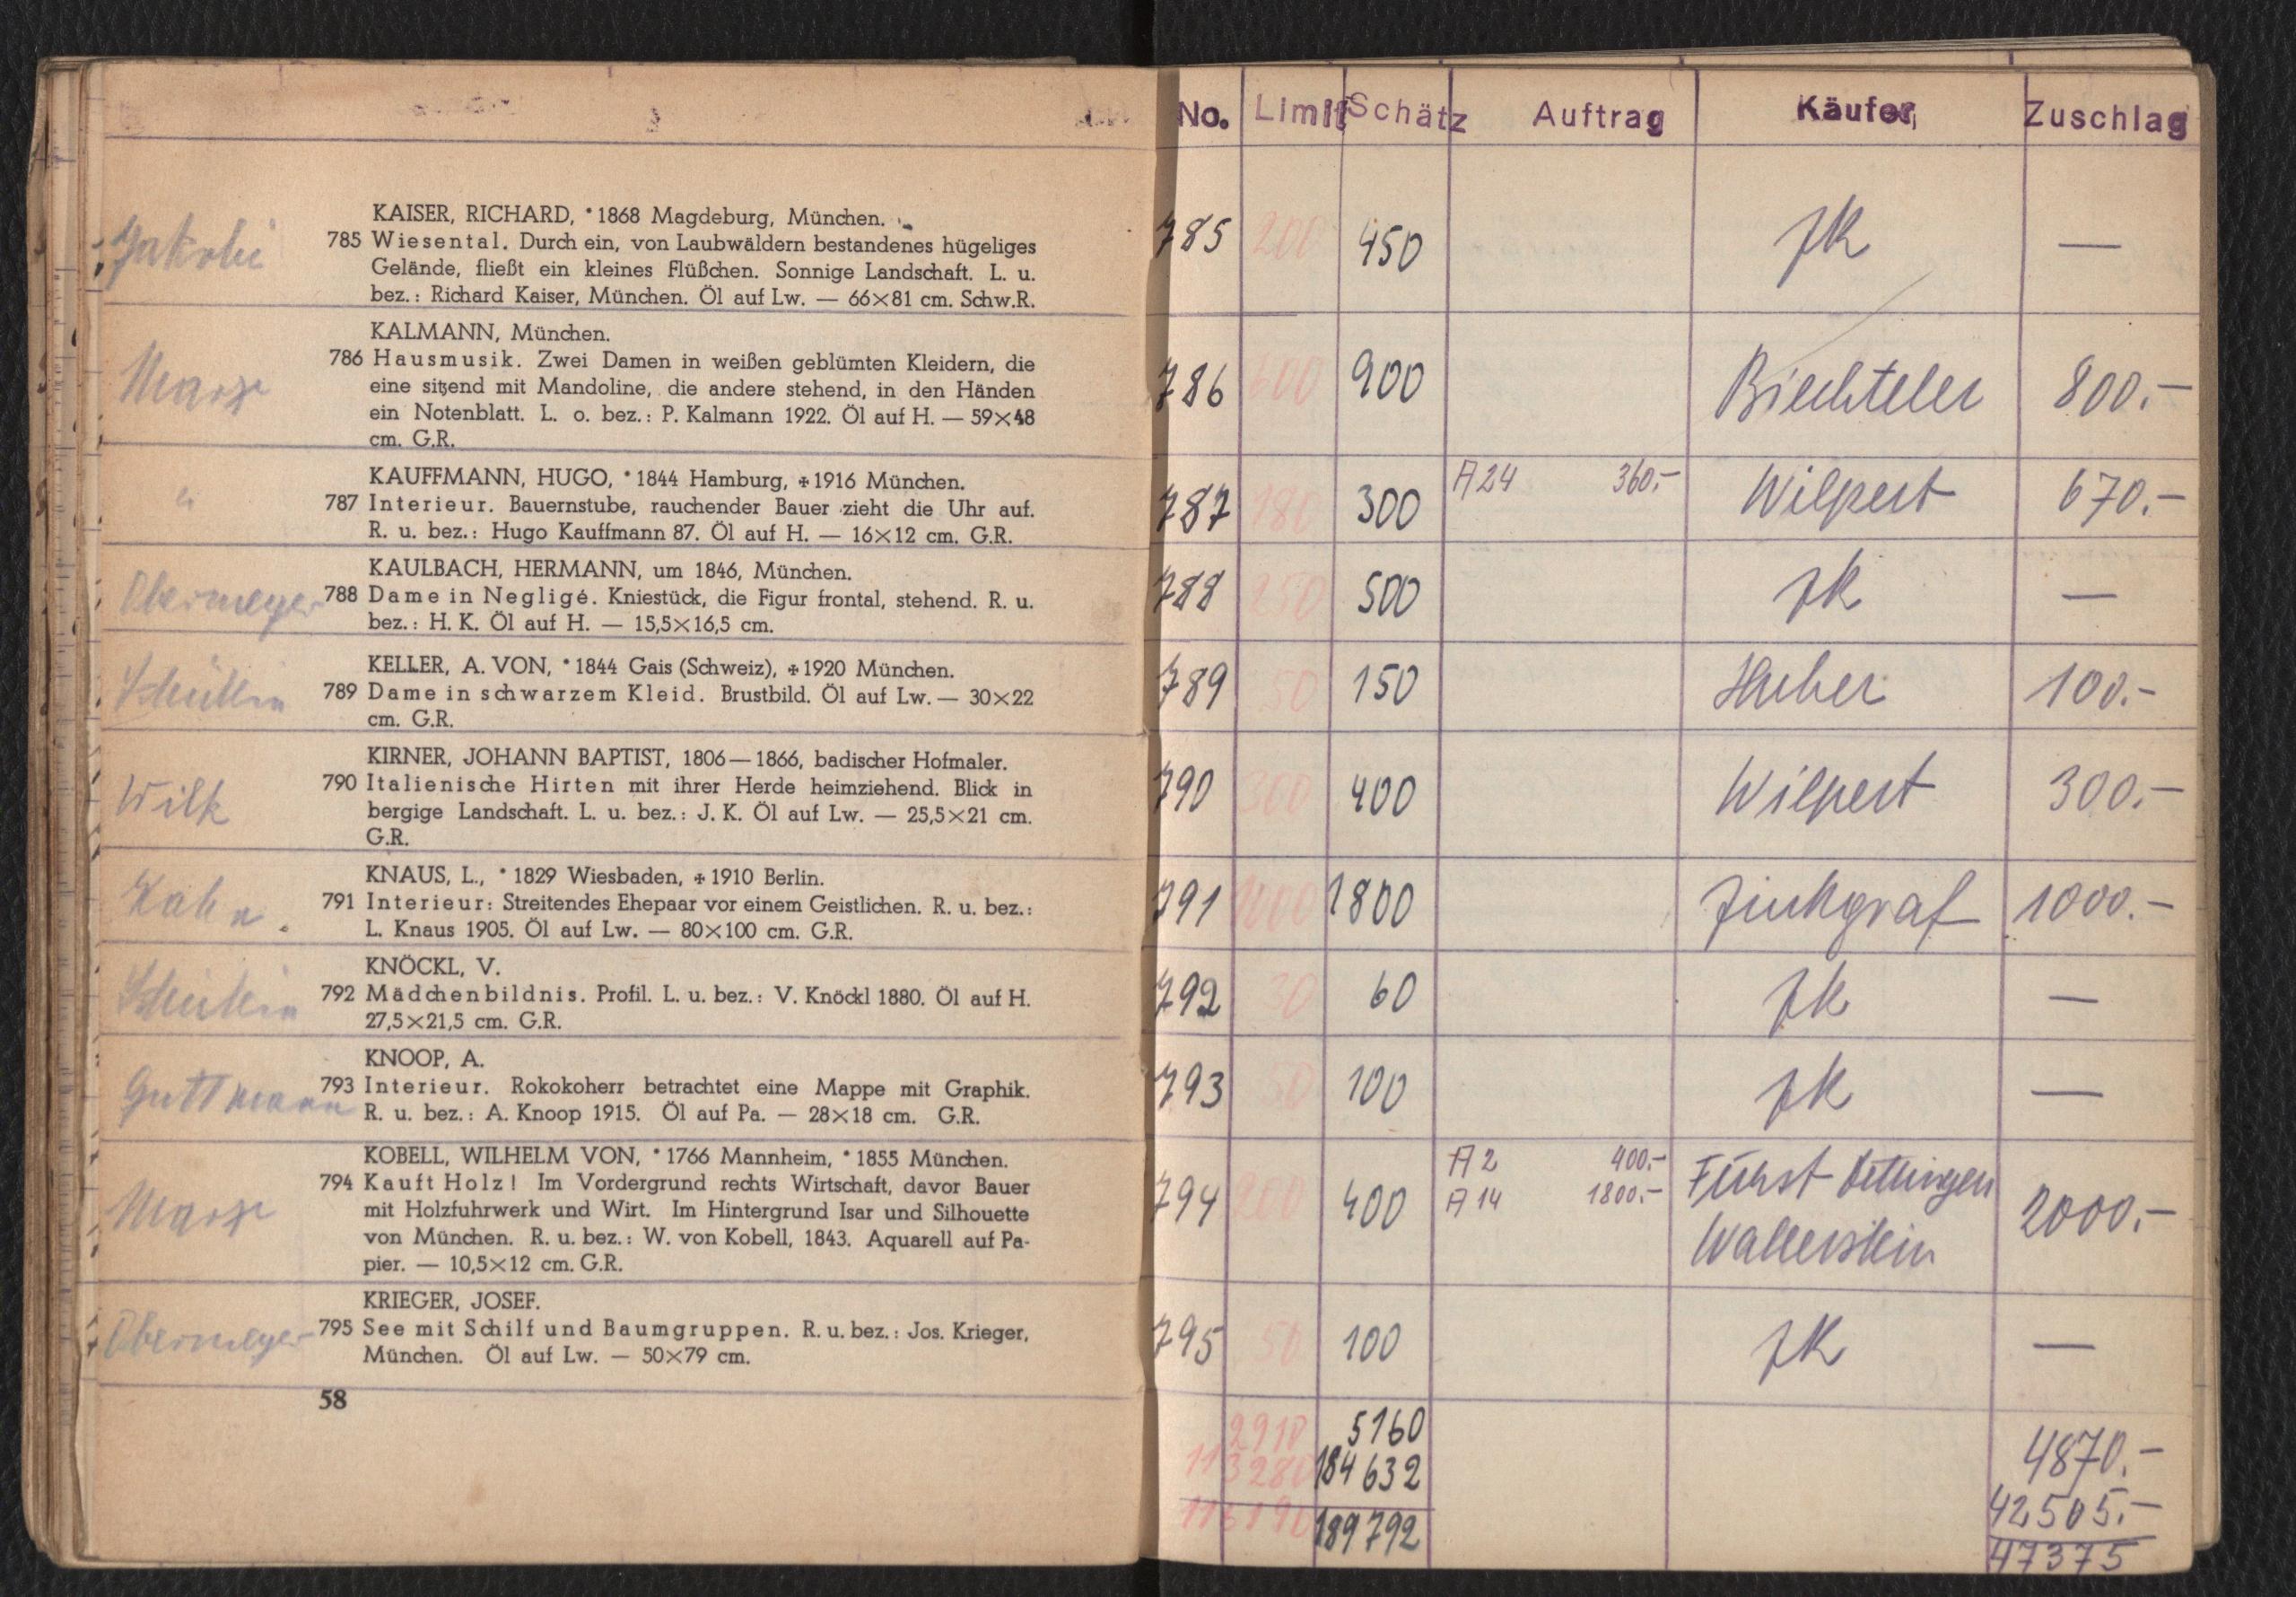 Jakobi
KAISER, RICHARD, *1868 Magdeburg, München.
785 Wiesental. Durch ein, von Laubwäldern bestandenes hügeliges
Gelände, fließt ein kleines Flüßchen. Sonnige Landschaft. L. u.
bez.: Richard Kaiser, München. Öl auf Lw. — 66×81 cm. Schw.R.
Marx
KALMANN, München.
786 Hausmusik. Zwei Damen in weißen geblümten Kleidern, die
eine sitzend mit Mandoline, die andere stehend, in den Händen
ein Notenblatt. L. o. bez.: P. Kalmann 1922. Öl auf H. — 59×48
cm. G.R.
"
KAUFFMANN, HUGO, *1844 Hamburg, ✠1916 München.
787 Interieur. Bauernstube, rauchender Bauer zieht die Uhr auf.
R. u. bez.: Hugo Kauffmann 87. Öl auf H. — 16×12 cm. G.R.
Obermeyer
KAULBACH, HERMANN, um 1846, München.
788 Dame in Negligé. Kniestück, die Figur frontal, stehend. R. u.
bez.: H. K. Öl auf H. — 15,5×16,5 cm.
KELLER, A. VON, *1844 Gais (Schweiz), ✠1920 München.
789 Dame in schwarzem Kleid. Brustbild. Öl auf Lw. — 30×22
cm. G.R.
Wilk
KIRNER, JOHANN BAPTIST, 1806—1866, badischer Hofmaler.
790 Italienische Hirten mit ihrer Herde heimziehend. Blick in
bergige Landschaft. L. u. bez.: J. K. Öl auf Lw. — 25,5×21 cm.
G.R.
Kahn.
KNAUS, L., *1829 Wiesbaden, ✠1910 Berlin.
791 Interieur: Streitendes Ehepaar vor einem Geistlichen. R. u. bez.:
L. Knaus 1905. Öl auf Lw. — 80×100 cm. G.R.
KNÖCKL, V.
792 Mädchenbildnis. Profil. L. u. bez.: V. Knöckl 1880. Öl auf H.
27,5×21,5 cm. G.R.
Guttmann
KNOOP, A.
793 Interieur. Rokokoherr betrachtet eine Mappe mit Graphik.
R. u. bez.: A. Knoop 1915. Öl auf Pa. — 28×18 cm. G.R.
Marx
KOBELL, WILHELM VON, *1766 Mannheim, *1855 München.
794 Kauft Holz! Im Vordergrund rechts Wirtschaft, davor Bauer
mit Holzfuhrwerk und Wirt. Im Hintergrund Isar und Silhouette
von München. R. u. bez.: W. von Kobell, 1843. Aquarell auf Pa-
pier. — 10,5×12 cm. G.R.
Obermeyer
KRIEGER, JOSEF.
795 See mit Schilf und Baumgruppen. R. u. bez.: Jos. Krieger,
München. Öl auf Lw. — 50×79 cm.
58
No. Limit Schätz Auftrag Käufer Zuschlag
785 200 450 —
786 600 900 Biechteler 800.-
787 180 300 A 24 360.- Wilpert 670.-
788 250 500 —
789 50 150 Huber 100.-
790 300 400 Wilpert 300.-
791 1000 1800 Zinkgraf 1000.-
792 30 60 —
793 50 100 —
794 200 400 A 2 400.- Fürst Oettingen
A 14 1800.- Wallerstein 2000.-
795 50 100 —
2910 5160 4870.-
113280 184632 42505.-
116190 189792 47375